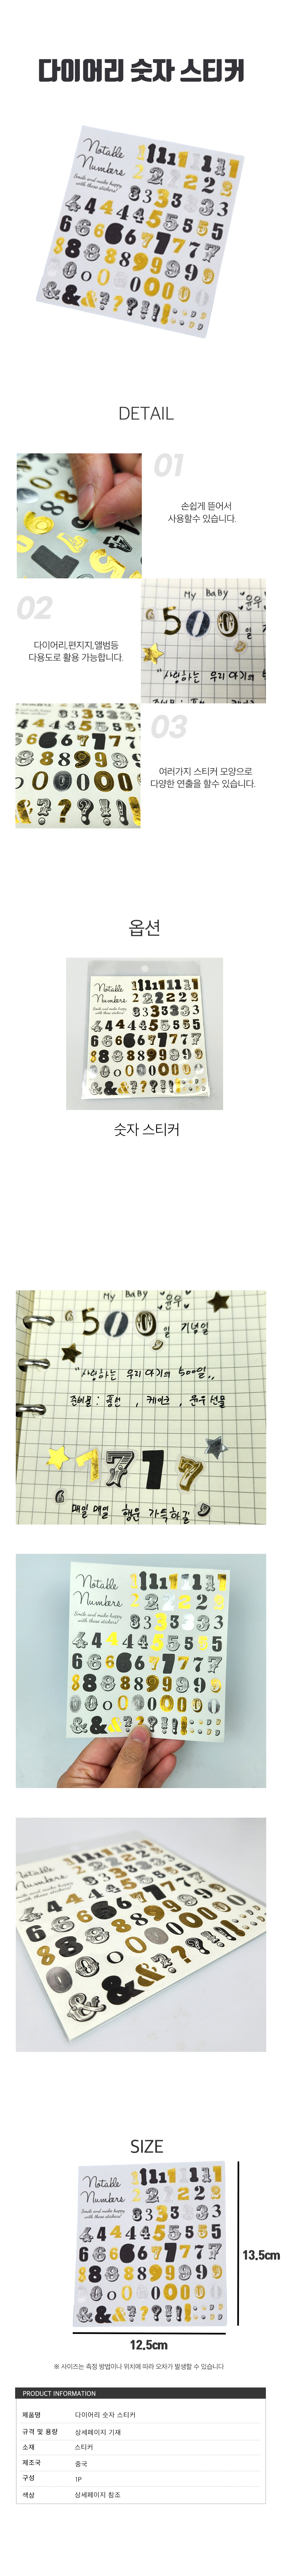 다이어리 숫자 스티커
Notable
Numbers
Smile and make happy
with these stickers!
DETAIL
01
손쉽게 뜯어서
사용할수 있습니다.
02
다이어리,편지지,앨범등
다용도로 활용 가능합니다.
My BaBy
500
03
여러가지 스티커 모양으로
다양한 연출을 할수 있습니다.
옵션
Notable
Numbers
Smile and make happy
with these stickers!
숫자 스티커
My BaBy
윤우
500일 기념일
"사랑하는 우리 아기의 500일,,
준비물 : 풍선 , 케이크 , 윤우 선물
7 7 1 7
매일 매일 행운 가득하길
Notable
Numbers
Smile and make happy
with these stickers!
Notable
Numbers
Smile and make happy
with these stickers!
SIZE
Notable
Numbers
Smile and make happy
with these stickers!
13.5cm
12.5cm
※ 사이즈는 측정 방법이나 위치에 따라 오차가 발생할 수 있습니다
PRODUCT INFORMATION
제품명 다이어리 숫자 스티커
규격 및 용량 상세페이지 기재
소재 스티커
제조국 중국
구성 1P
색상 상세페이지 참조